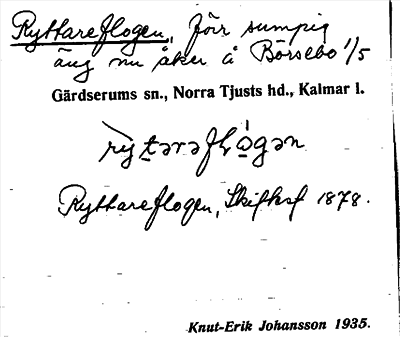 Ryttareflogen, förr sumpig
äng nu åker å Börsebo 1/5
Gärdserums sn., Norra Tjusts hd., Kalmar l.
Ryttareflogen, Skifteskf 1878.
Knut-Erik Johansson 1935.